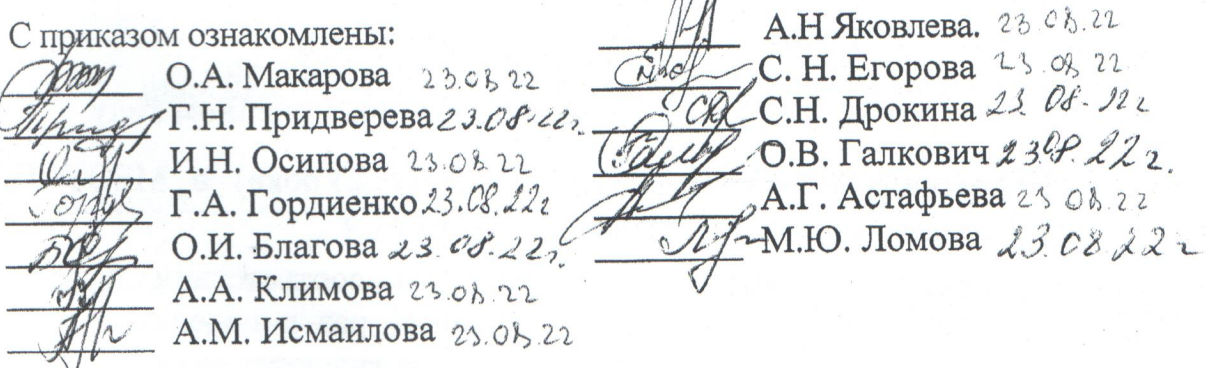 С приказом ознакомлены:
О.А. Макарова 23.08.22
Г.Н. Придверева 23.08.22г.
И.Н. Осипова 23.08.22
Г.А. Гордиенко 23.08.22г
О.И. Благова 23.08.22г.
А.А. Климова 23.08.22
А.М. Исмаилова 23.08.22
А.Н Яковлева. 23.08.22
С. Н. Егорова 23.08 22
С.Н. Дрокина 23.08-22г
О.В. Галкович 23.08.22г.
А.Г. Астафьева 23 08.22
М.Ю. Ломова 23.08 22г